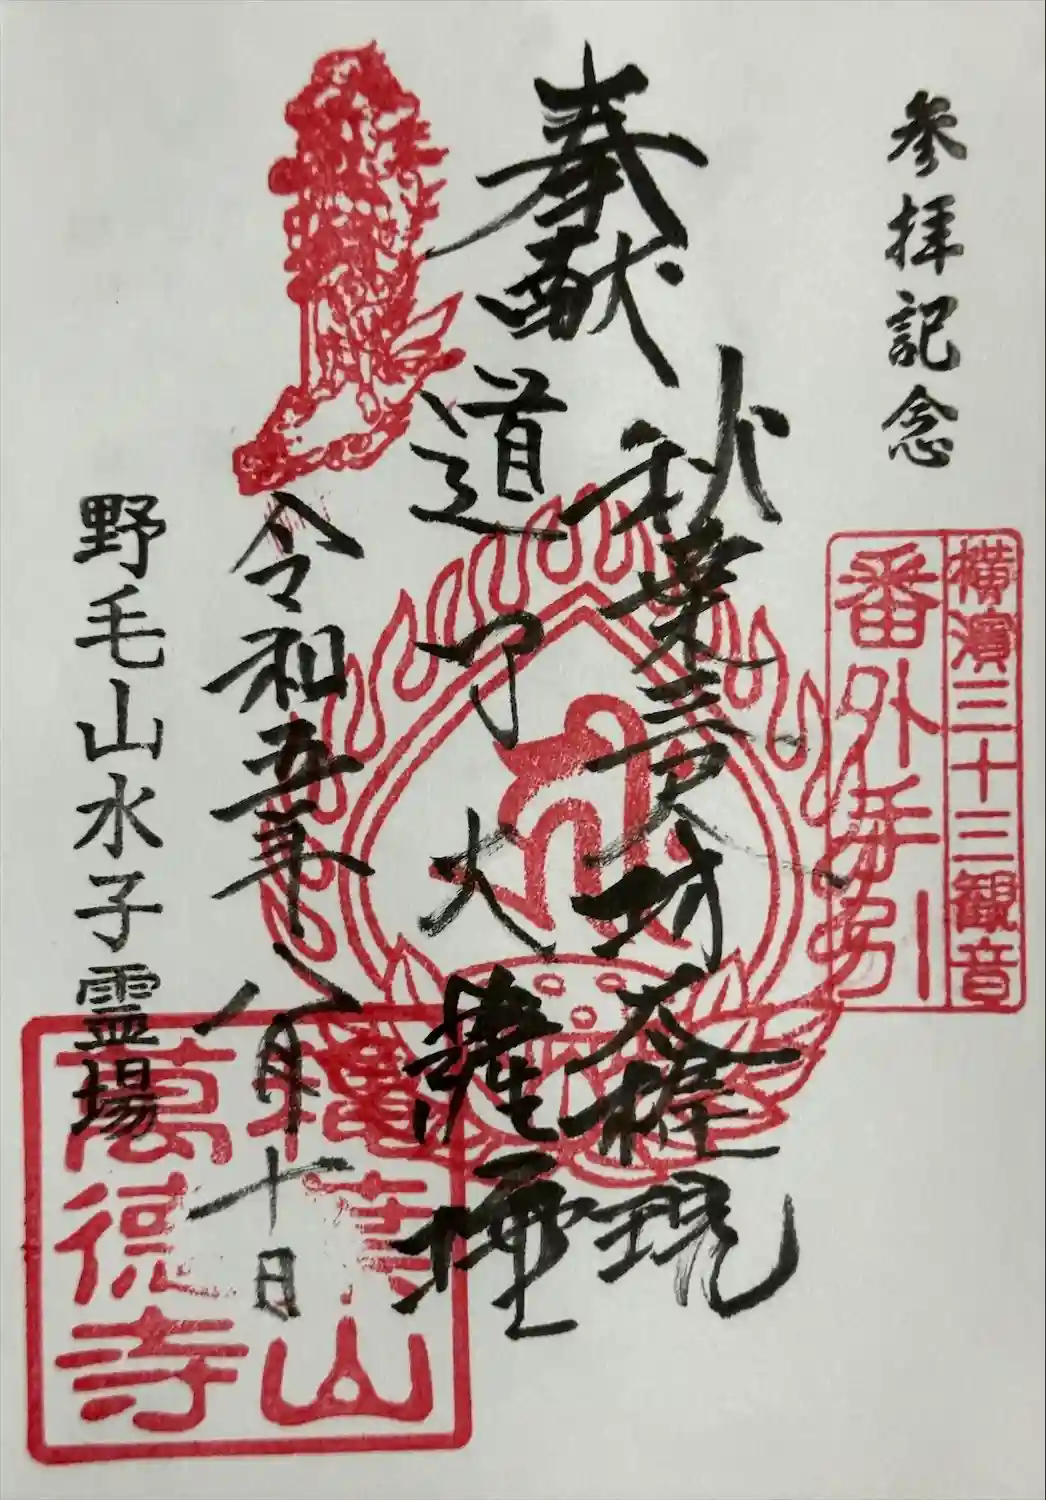 参拝記念
横濱三十三観音
番外手引
奉献
秋葉三尺坊大権現
道了大薩埵
令和五年八月十日
野毛山水子霊場
山
萬徳寺